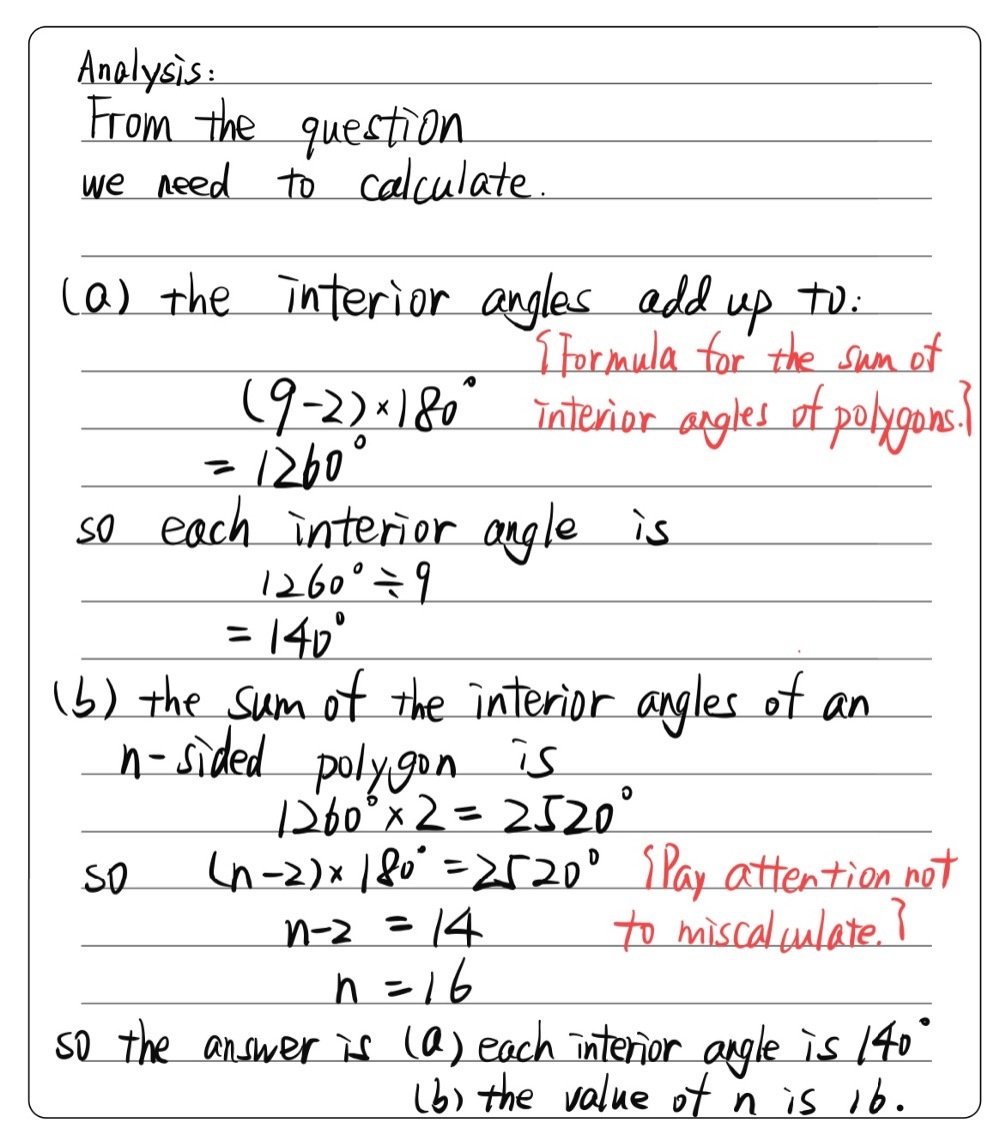 Analysis:
From the question
we need to calculate.
(a) the interior angles add up to:
{Formula for the sum of
(9-2)×180°
interior angles of polygons.}
= 1260°
so each interior angle is
1260°÷9
= 140°
(b) the sum of the interior angles of an
n-sided polygon is
1260°×2 = 2520°
so (n-2)×180° = 2520° {Pay attention not
n-2 = 14 to miscalculate.}
n = 16
so the answer is (a) each interior angle is 140°
(b) the value of n is 16.